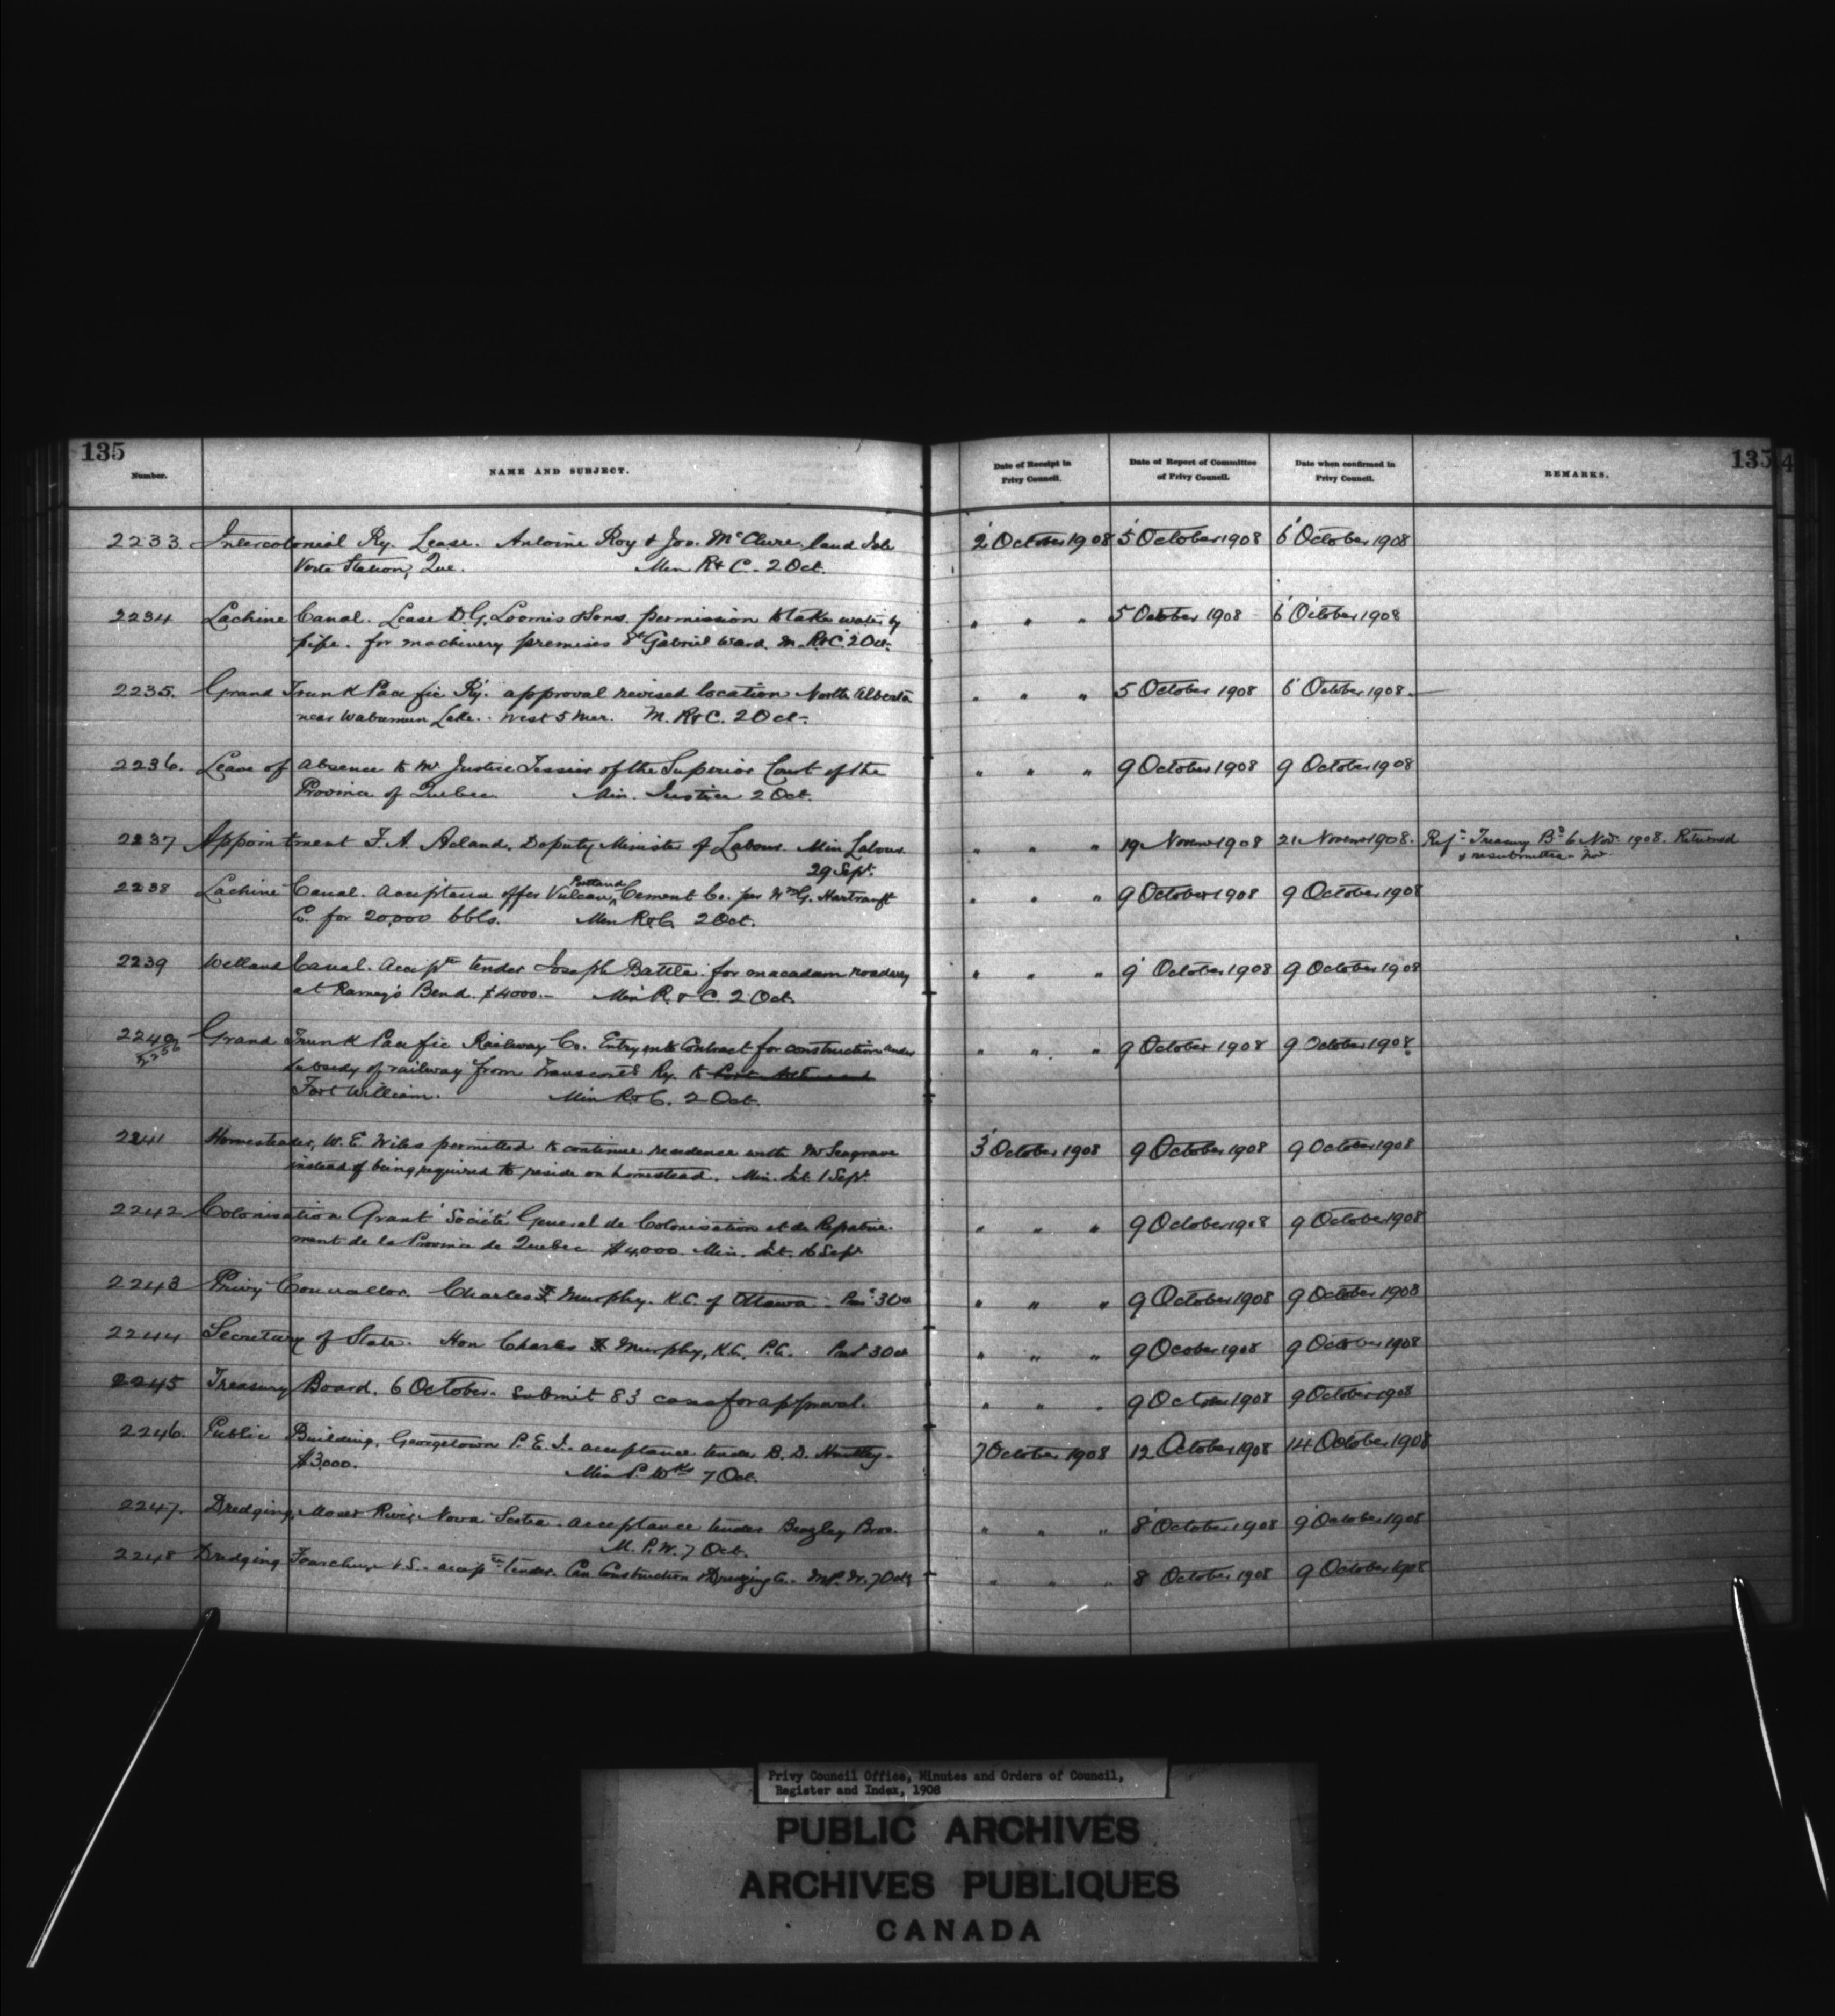 135
135
Number.
NAME AND SUBJECT.
Date of Receipt in
Privy Council.
Date of Report of Committee
of Privy Council.
Date when confirmed in
Privy Council.
REMARKS.
2233. Intercolonial Ry. Lease. Antoine Roy & Jos. McClure, land Isle 2 October 1908 5 October 1908 6 October 1908
Verte Station, Que. Min R & C. 2 Oct.
2234 Lachine Canal. Lease D. G. Loomis & Sons. permission to take water by " " " 5 October 1908 6 October 1908
pipe. for machinery premises St Gabriel Ward. M. R & C. 2 Oct.
2235. Grand Trunk Pacific Ry. approval revised location North Alberta " " " 5 October 1908 6 October 1908
near Wabamun Lake. West 5 Mer. M. R & C. 2 Oct.
2236. Leave of Absence to Mr Justice Tessier of the Superior Court of the " " " 9 October 1908 9 October 1908
Province of Quebec. Min. Justice 2 Oct.
2237 Appointment F. A. Acland, Deputy Minister of Labour. Min Labour. " " " 19 Novemr 1908 21 Novemr 1908. Refd Treasury Bd 6 Nov. 1908. Returned
29 Sept. & resubmitted
2238 Lachine Canal. Acceptance offer Vulcan Portland Cement Co. per Wm G. Hartranft " " " 9 October 1908 9 October 1908
Co. for 20,000 bbls. Min R & C. 2 Oct.
2239 Welland Canal. Accepce tender Joseph Battle. for macadam roadway " " " 9 October 1908 9 October 1908
at Ramey's Bend. $4000.- Min R. & C. 2 Oct.
2240 Grand Trunk Pacific Railway Co. Entry into Contract for construction under " " " 9 October 1908 9 October 1908
2256
subsidy of railway from Transcontl Ry. to
Fort William. Min R & C. 2 Oct.
2241 Homesteader, W. E. Wiles permitted to continue residence with Mr Seagrave 3 October 1908 9 October 1908 9 October 1908
instead of being required to reside on homestead. Min. Int. 1 Sept.
2242 Colonisation Grant Société General de Colonisation et de Repatrie- " " " 9 October 1908 9 October 1908
ment de la Province de Quebec $4,000. Min. Int. 16 Sept.
2243 Privy Councillor. Charles Murphy. K.C. of Ottawa. " " " 9 October 1908 9 October 1908
2244 Secretary of State. Hon Charles Murphy, K.C. P.C. " " " 9 Ocober 1908 9 October 1908
2245 Treasury Board. 6 October. submit 83 cases for approval. " " " 9 October 1908 9 October 1908
2246. Public Building, Georgetown P. E. I. acceptance tender B. D. Huntley. 7 October 1908 12 October 1908 14 October 1908
$3,000. Min P. Wks 7 Oct.
2247. Dredging, Moser River Nova Scotia. acceptance tender Beazley Bros. " " " 8 October 1908 9 October 1908
M. P. W. 7 Oct.
2248 Dredging N.S. accepce tender. Can Construction & Dredging Co. M.P.W. 7 Oct. " " " 8 October 1908 9 October 1908
Privy Council Office, Minutes and Orders of Council,
Register and Index, 1908
PUBLIC ARCHIVES
ARCHIVES PUBLIQUES
CANADA